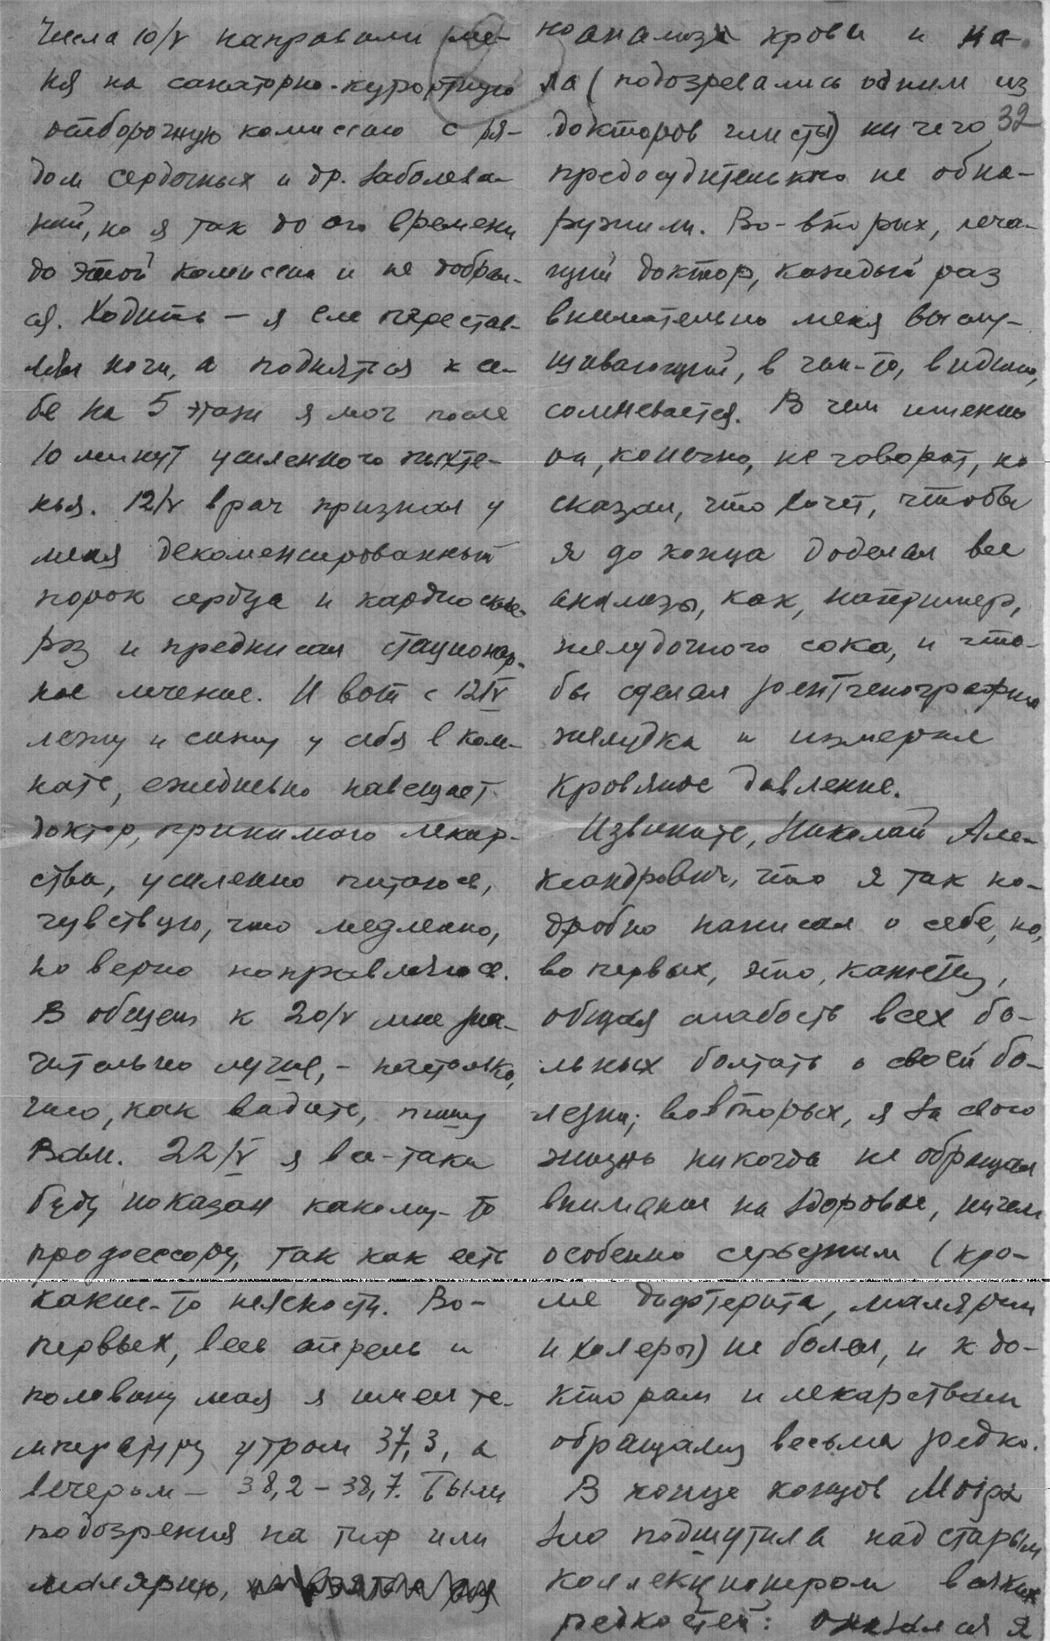 числа 10/V направили ме-
ня на санаторно-курортную
отборочную комиссию с ря-
дом сердечных и др. заболева-
ний, но я так до сего времени
до этой комиссии и не добрал-
ся. Ходить – я еле перестав-
лял ноги, а подняться к се-
бе на 5 этаж я мог после
10 минут усиленного пыхте-
нья. 12/V врач признал у
меня декомпенсированный
порок сердца и кардиоскле-
роз и предписал стационар-
ное лечение. И вот с 12/V
лежу и сижу у себя в ком-
нате, ежедневно навещает
доктор, принимаю лекар-
ства, усиленно питаюсь,
чувствую, что медленно,
но верно поправляюсь.
В общем к 20/V мне зна-
чительно лучше, – настолько,
что, как видите, пишу
Вам. 22/V я все-таки
буду показан какому-то
профессору, так как есть
какие-то неясности. Во-
первых, весь апрель и
половину мая я имел те-
мпературу утром 37,3, а
вечером – 38,2 – 38,7. Были
подозрения на тиф или
малярию,
но анализы крови и ка-
ла (подозревались одним из
докторов глисты) ничего
32
предосудительного не обна-
ружили. Во-вторых, леча-
щий доктор, каждый раз
внимательно меня выслу-
шивающий, в чем-то, видимо,
сомневается. В чем именно
он, конечно, не говорит, но
сказал, что хочет, чтобы
я до конца доделал все
анализы, как, например,
желудочного сока, и что-
бы сделал рентгенографию
желудка и измерил
кровяное давление.
Извините, Николай Але-
ксандрович, что я так по-
дробно написал о себе, но,
во первых, это, кажется,
общая слабость всех бо-
льных болтать о своей бо-
лезни; во вторых, я за свою
жизнь никогда не обращал
внимания на здоровье, ничем
особенно серьезным (кро-
ме дифтерита, малярии
и холеры) не болел, и к до-
кторам и лекарствам
обращались весьма редко.
В конце концов Мойра
зло подшутила над старым
коллекционером всяких
редкостей: оказался я